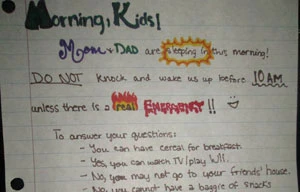 Morning, Kids!
Mom + DAD are sleeping in this morning!
DO NOT Knock and wake us up before 10 AM
unless there is a real EMERGENCY!!
To answer your questions:
- You can have cereal for breakfast.
- Yes, you can watch TV/play Wii.
- No, you may not go to your friends' house.
- No, you cannot have a baggie of snacks